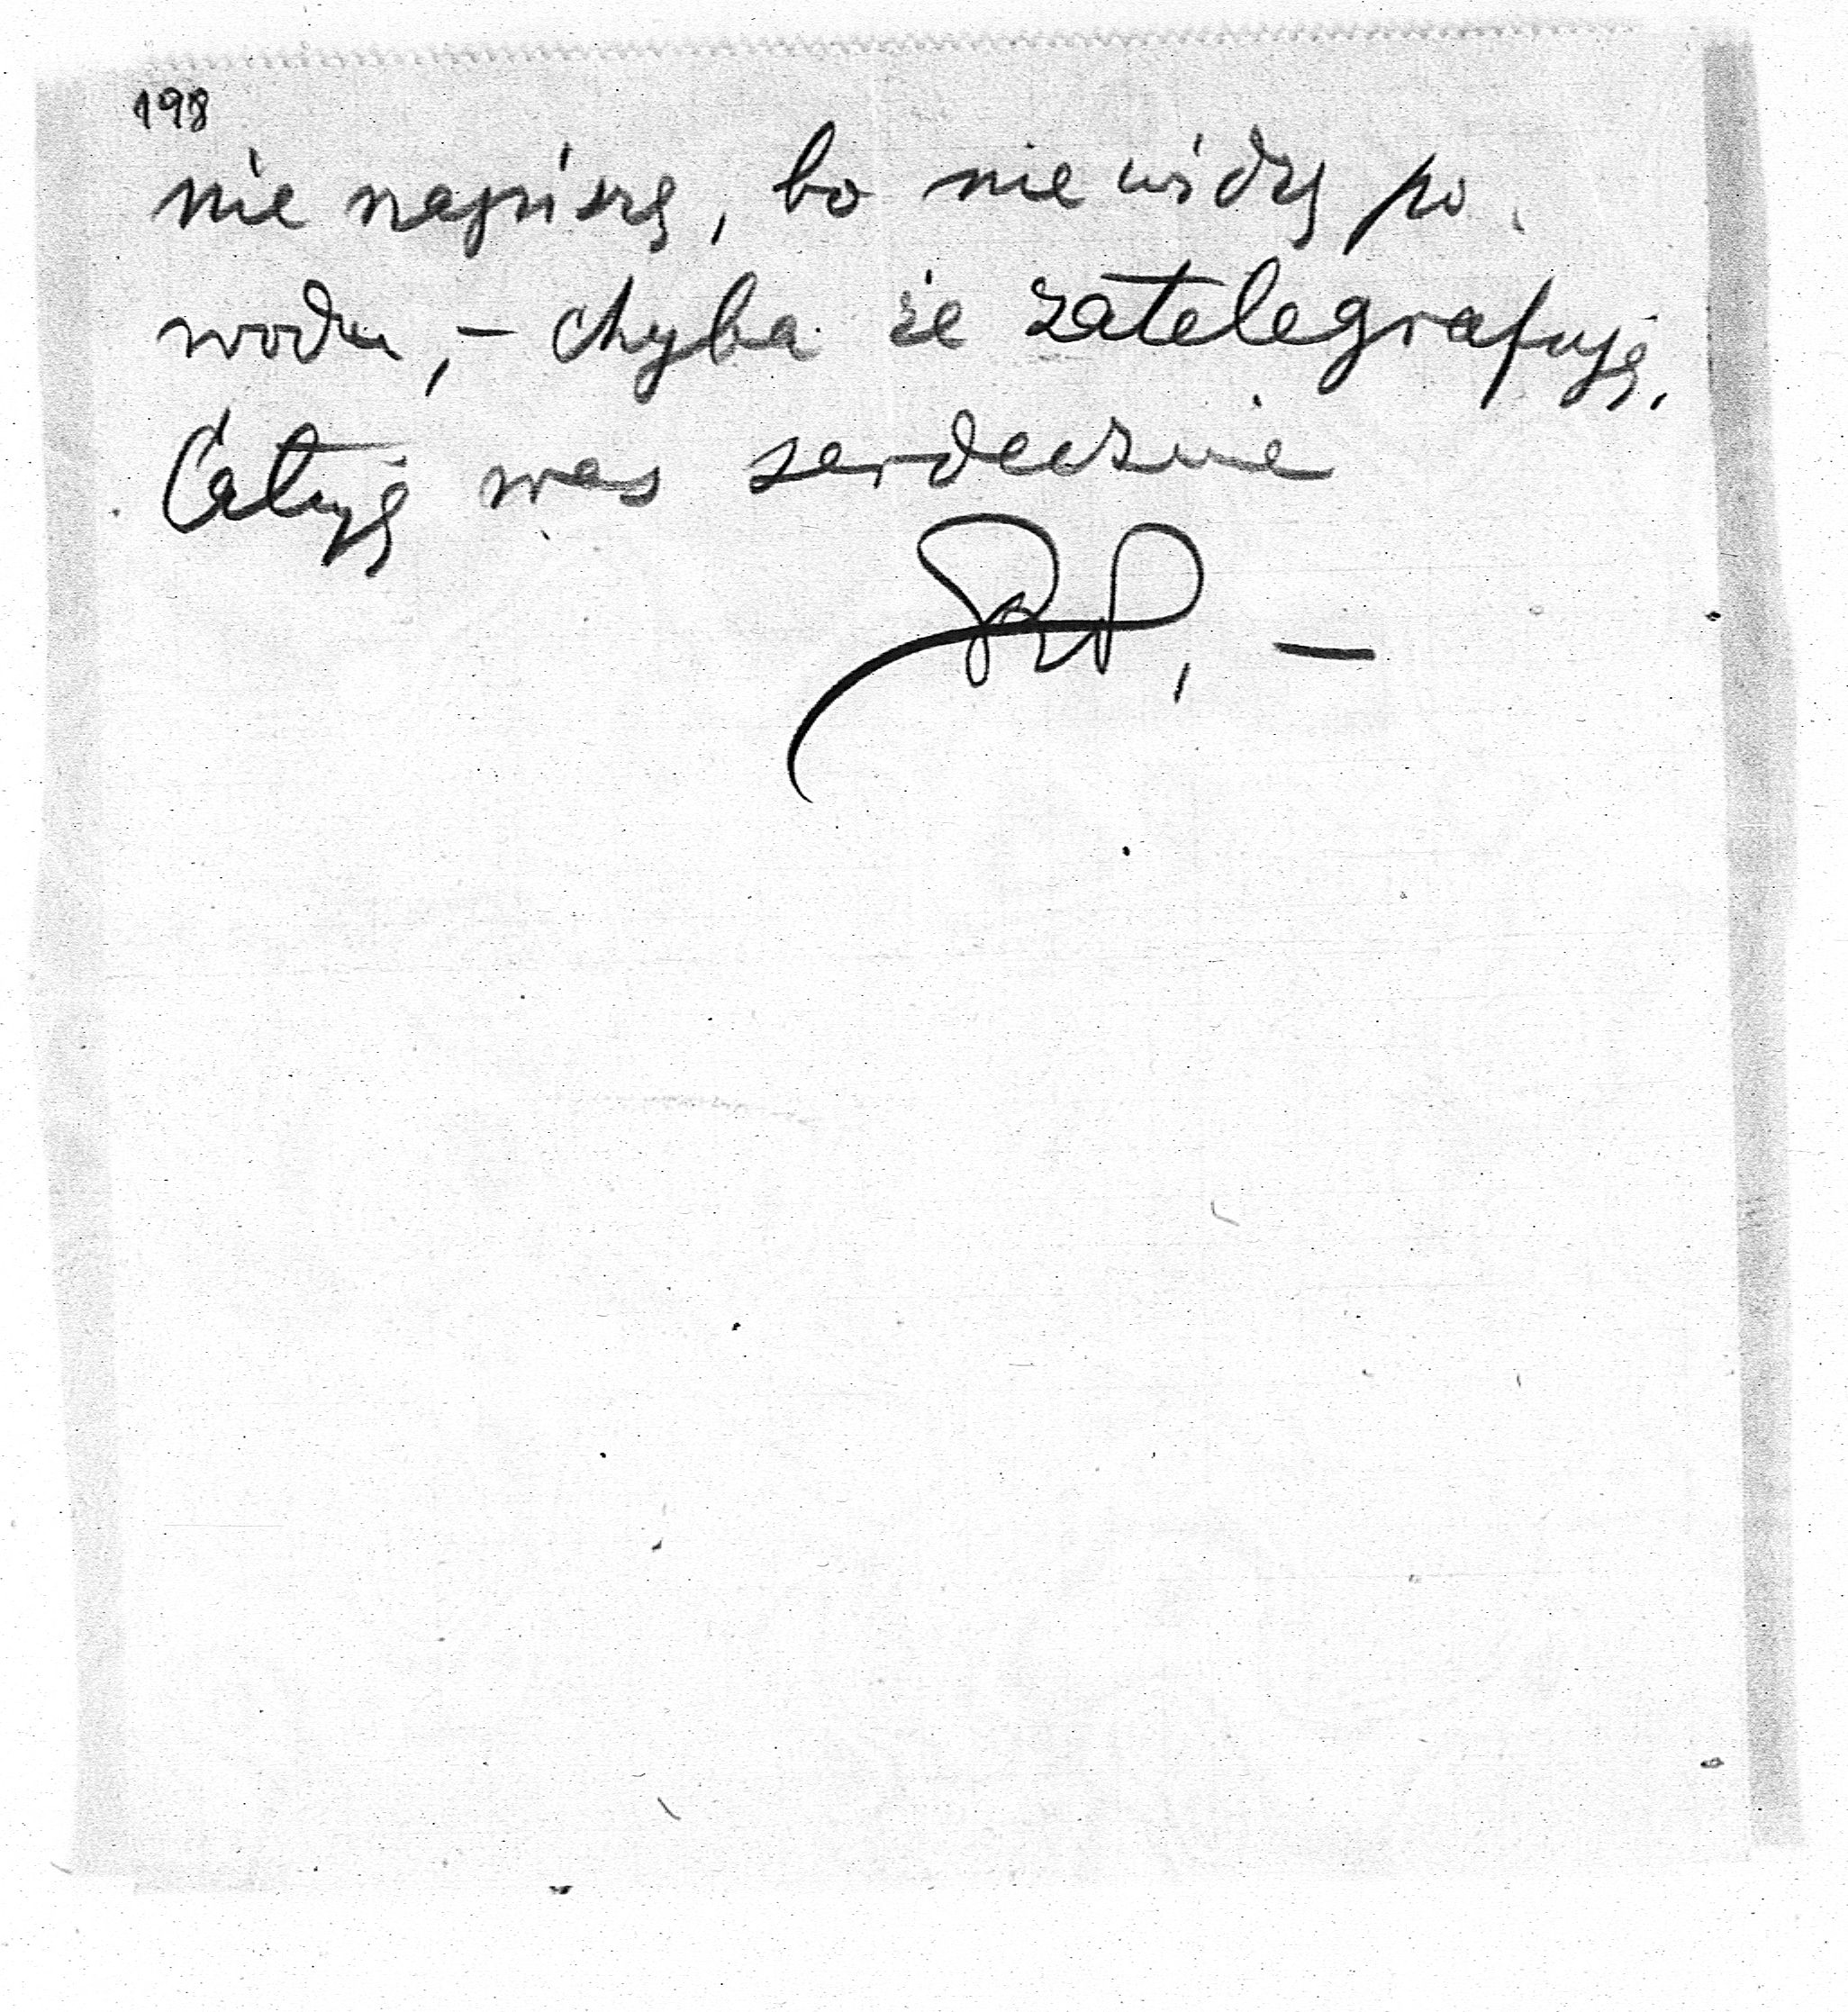 198
nie napiszę, bo nie widzę po-
wodu,- chyba że zatelegrafuję.
Całuję was serdecznie
RP, -